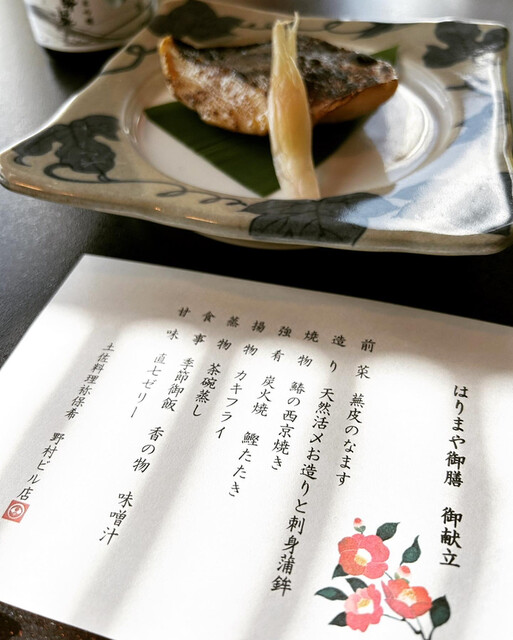 はりまや御膳　御献立
前菜　蕪皮のなます
造り　天然活〆お造りと刺身蒲鉾
焼物　鰆の西京焼き
強肴　炭火焼　鰹たたき
揚物　カキフライ
蒸物　茶碗蒸し
食事　季節御飯　香の物　味噌汁
甘味　直七ゼリー
土佐料理祢保希　野村ビル店